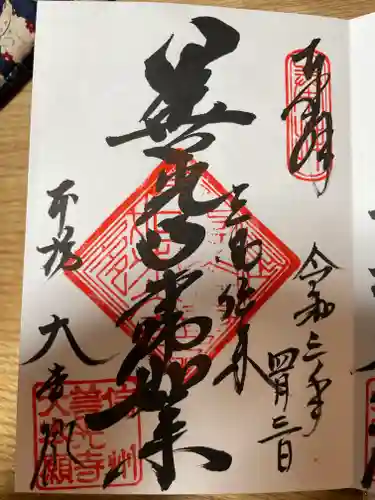 奉拝
令和三年
四月三日
三国伝来
善光寺如来
本坊
大本願
信州
善光寺
大本願